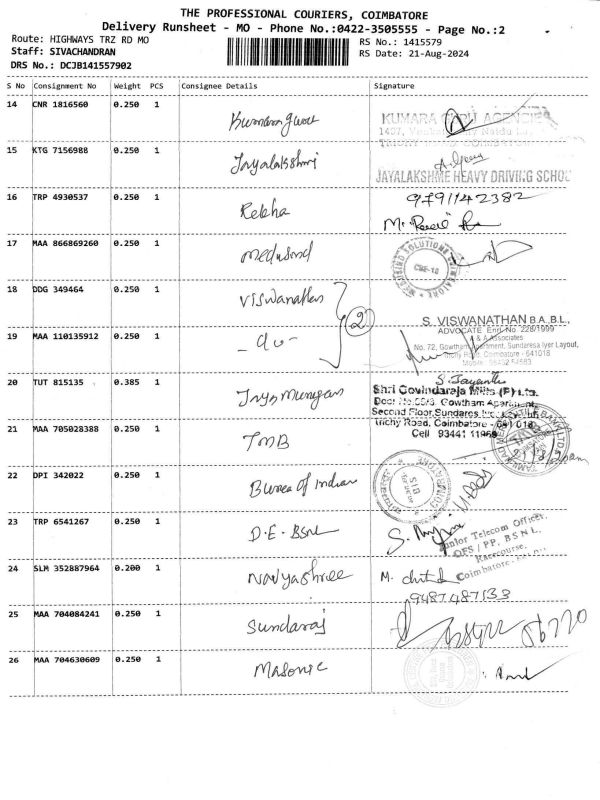 THE PROFESSIONAL COURIERS, COIMBATORE
Delivery Runsheet - MO - Phone No.:0422-3505555 - Page No.:2
Route: HIGHWAYS TRZ RD MO
RS No.: 1415579
Staff: SIVACHANDRAN
RS Date: 21-Aug-2024
DRS No.: DCJB141557902
S No Consignment No Weight PCS Consignee Details Signature
14 CNR 1816560 0.250 1 KUMARA GURU AGENCIES
15 KTG 7156988 0.250 1 Jayalakshmi
JAYALAKSHME HEAVY DRIVING SCHOOL
9791142382
16 TRP 4930537 0.250 1 Rekha
17 MAA 866869260 0.250 1 CBE-18
18 DDG 349464 0.250 1 Viswanathan
2
S. VISWANATHAN B.A.B.L.,
ADVOCATE Enrl No 228/1999
& A Associates
19 MAA 110135912 0.250 1 - do -
No. 72, Gowtham Apartment, Sundaresa Iyer Layout,
Trichy Road, Coimbatore - 641018
20 TUT 815135 0.385 1
S. Jayanthi
Shri Govindaraja Mills (P) Ltd.
Gowtham Apartment,
Second Floor,
Trichy Road, Coimbatore - 641 018
Cell 93441
21 MAA 705028388 0.250 1 TMB
22 DPI 342022 0.250 1 Bureau of Indian
BIS
23 TRP 6541267 0.250 1 D.E. BSNL
Junior Telecom Officer,
OFS / PP, B S N L,
Racecourse,
Coimbatore
24 SLM 352887964 0.200 1 Navyashree M.
9487487133
25 MAA 704084241 0.250 1 Sundaraj
26 MAA 704630609 0.250 1 Masonic